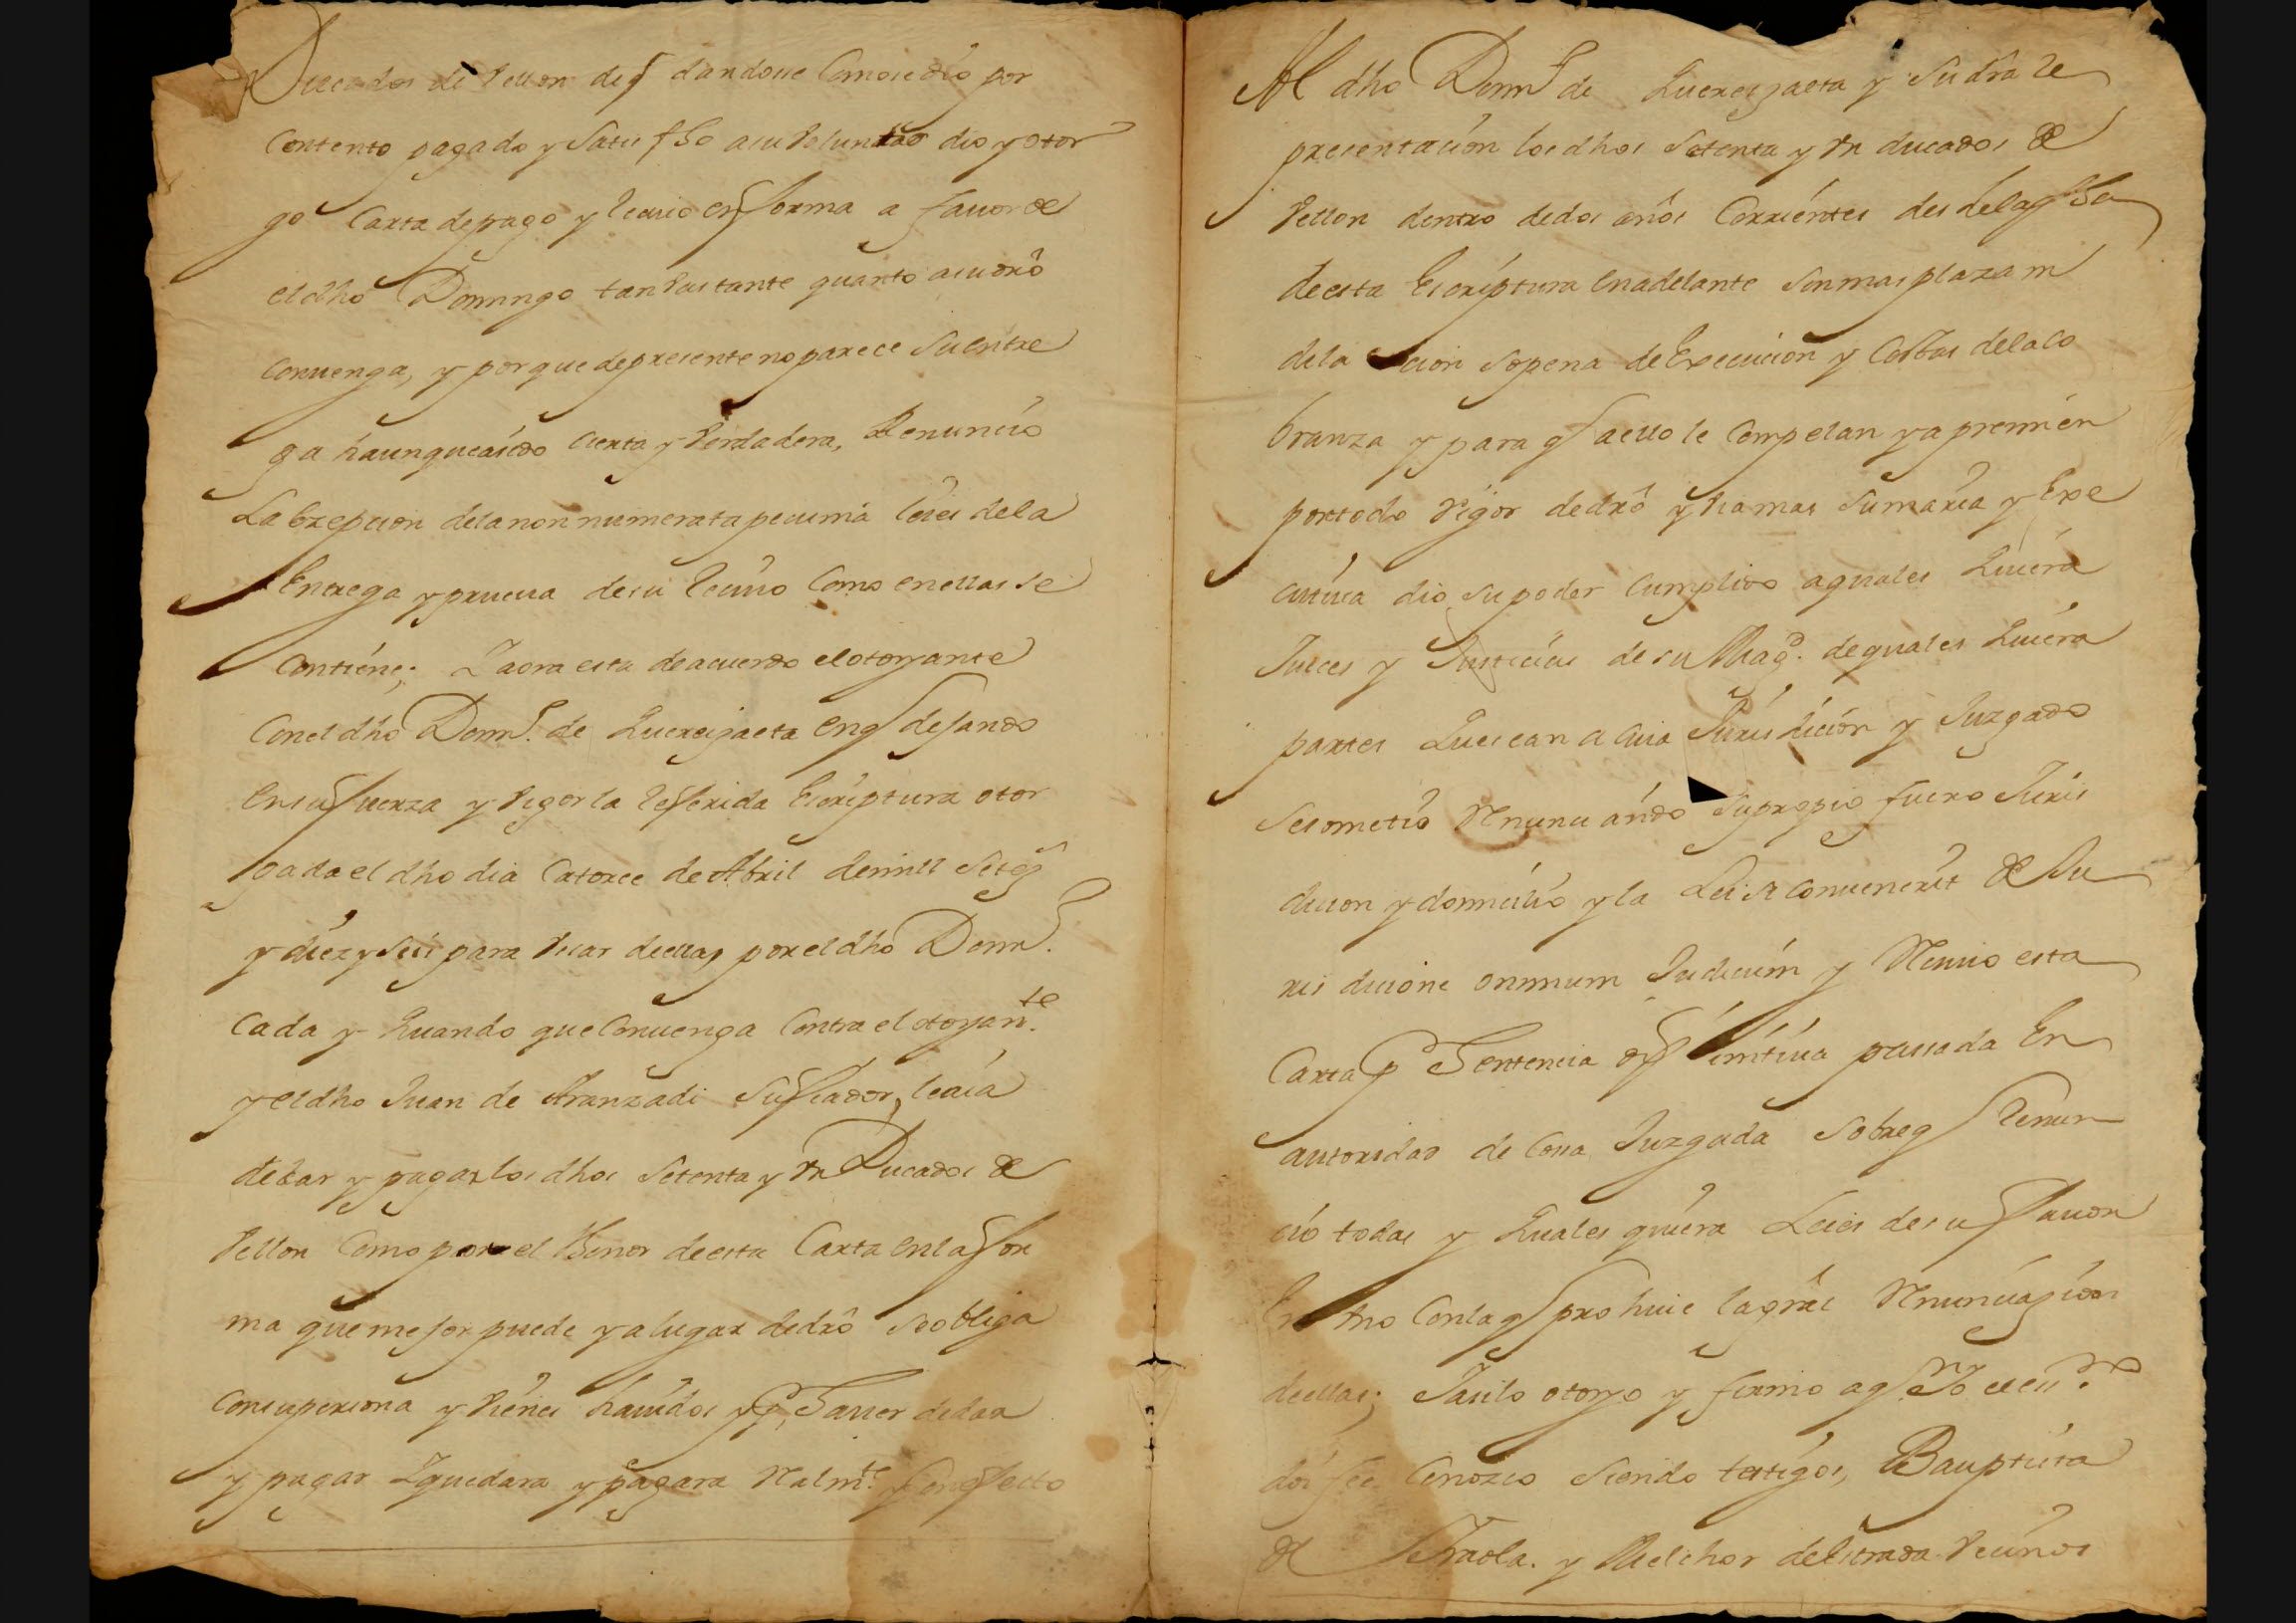 Ducados de Vellon de q dandose Como se dio por
Contento pagado y Satisfho a su Voluntad dio y otor
go Carta de pago y reciuo en forma a fauor de
el dho Domingo tan Vastante quanto a su drô
Conuenga, y por que de presente no parece Su entre
ga haunque a sido Cierta y Verdadera, Renuncio
La Exepcion de la non numerata pecunia leies de la
Entrega y prueua de su reciuo Como en ellas se
Contiene; Y aora esta de acuerdo el otorgante
Con el dho Domᵒ. de Quereijaeta en q dejando
en su fuerza y Vigor la referida Escriptura otor
gada el dho dia Catorce de Abril de mill Seteˢ
y diez y Seis para Vsar de ellas por el dho Domᵒ.
Cada y Quando que Conuenga Contra el otorganᵗᵉ.
y el dho Juan de Aranzadi Su fiador, le aia
de dar y pagar los dhos Setenta y Vn Ducados de
Vellon Como por el thenor de esta Carta en la for
ma que mejor puede y a lugar de drô Se obliga
Con su persona y Vienes hauidos y p Hauer de dar
y pagar Y que dara y pagara Realmᵗᵉ. y Con efecto
Al dho Domᵒ de Quereijaeta y Su dra re
presentacion los dhos Setenta y Vn ducados de
Vellon dentro de dos años Corrientes desde la fha
de esta Escriptura en adelante Sin mas plaza ni
dilacion So pena de Execucion y Costas de la Co
branza y para q a ello le Compelan y apremien
por todo rigor de drô y ha mas Sumaria y Exe
cutiua dio Su poder Cumplido a quales Quiera
Juices y Justicias de su Magᵈ. de quales Quiera
partes Que sean a Cuia Jurisdicion y Juzgado
Se sometio Renunciando Su propio fuero Juris
dicion y domicilio y la Lei si Conuenerit de Ju
risdicione omnium Judicum y Reciuio esta
Carta p Sentencia difinitiua passada En
autoridad de Cosa Juzgada Sobre q renun
cio todas y Quales quiera Leies de su fauor
En Vno Con la q prohiue la gral Renunciazion
de ellas; Y asi lo otorgo y firmo a q Yo el esᵒ.
doi fee Conozco Siendo testigos, Bauptista
de Yraola. y Melchor de Estrada Vecinos